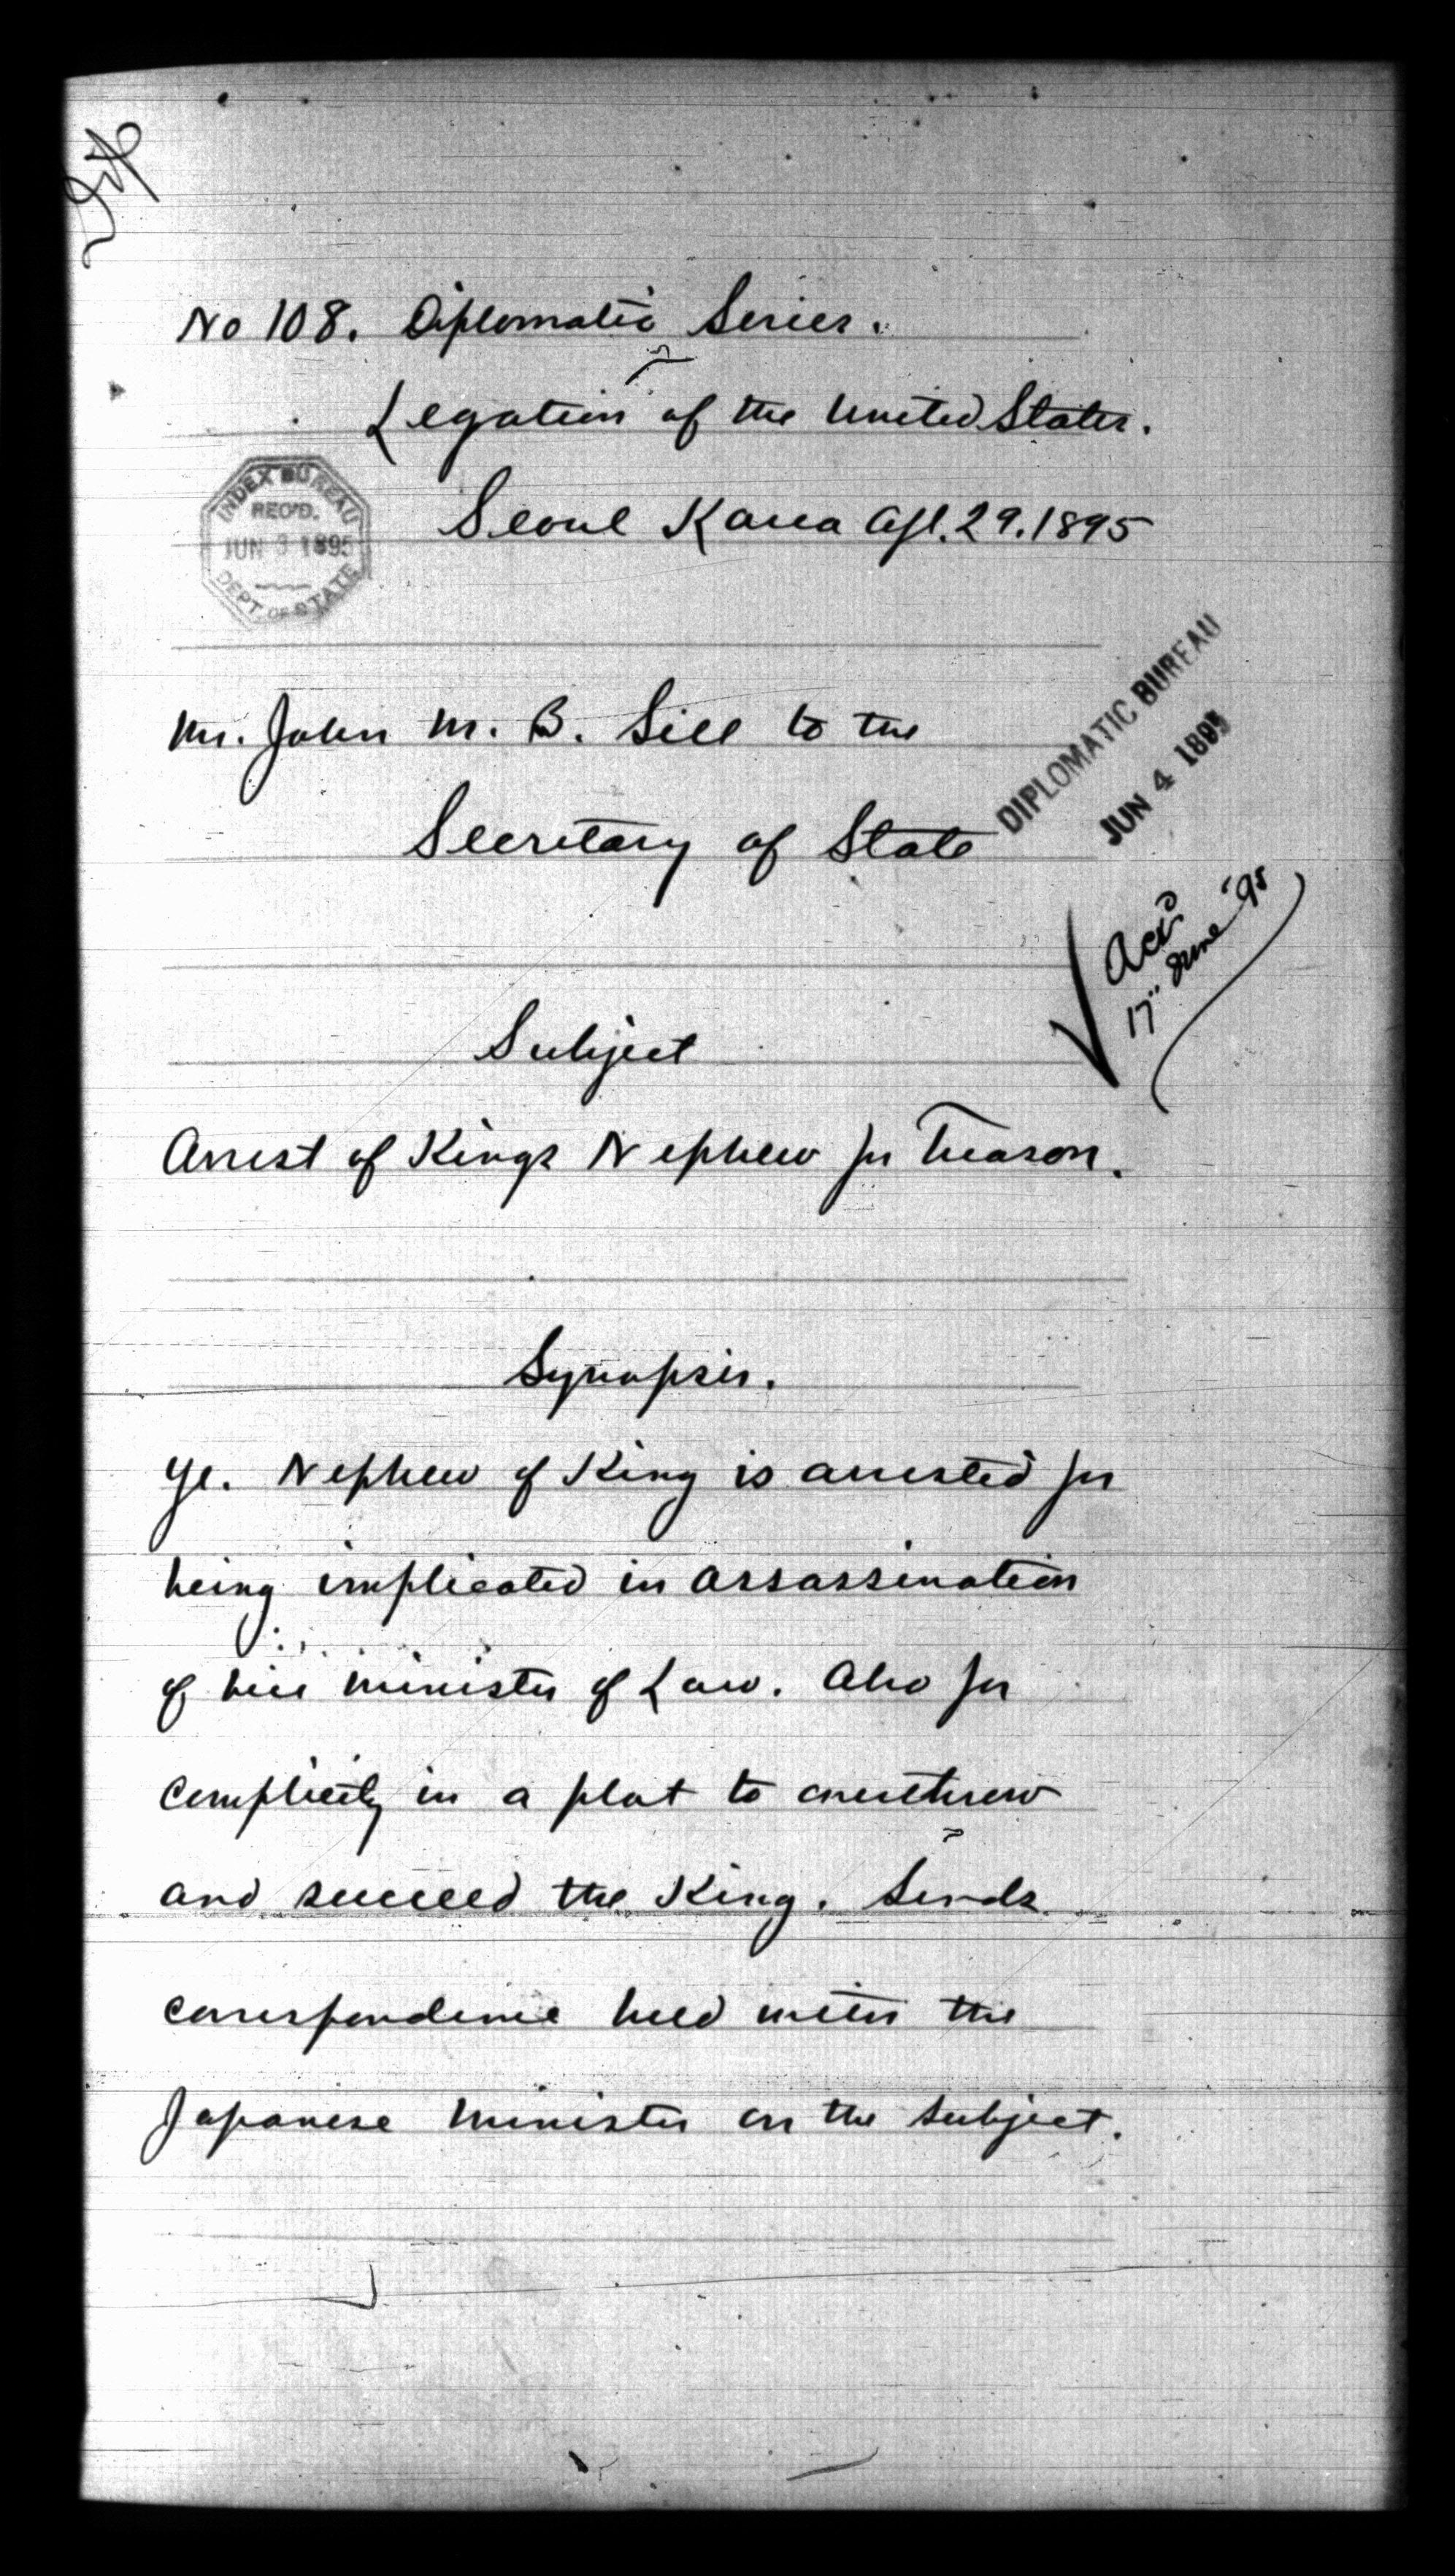 No 108. Diplomatic Series.
Legation of the United States.
Seoul Korea Apl. 29. 1895
INDEX BUREAU
REC'D.
JUN 3 1895
DEPT. OF STATE
Mr. John M. B. Sill to the
Secretary of State
DIPLOMATIC BUREAU
JUN 4 1895
Ack'd
17" June '95
Subject
Arrest of Kings Nephew for Treason.
Synopsis.
Ye. Nephew of King is arrested for
being implicated in assassination
of Vice Minister of Law. Also for
complicity in a plot to overthrow
and succeed the King. Sends
correspondence held with the
Japanese Minister on the subject.